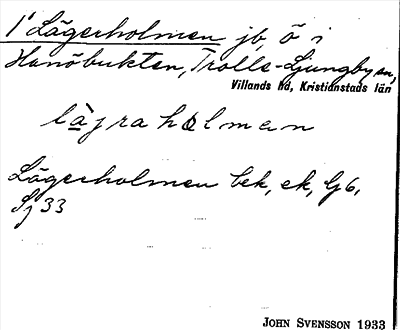 1 Lägerholmen jb, ö i
Hanöbukten, Trolle-Ljungby sn,
Villands hd, Kristianstads län
làjraholmen
Lägerholmen bek, ek, G6,
Sj 33
JOHN SVENSSON 1933